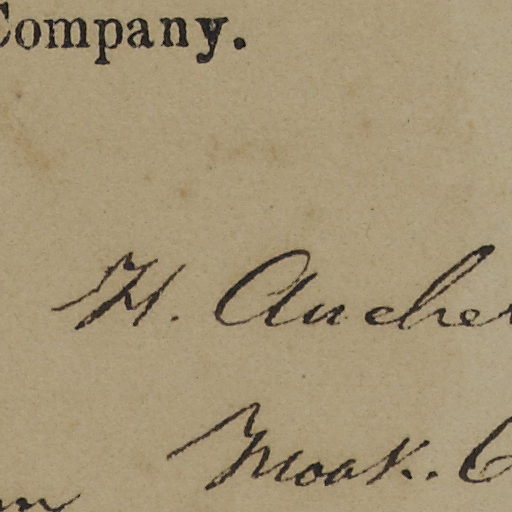 Company.
H. Aucher
Moak.